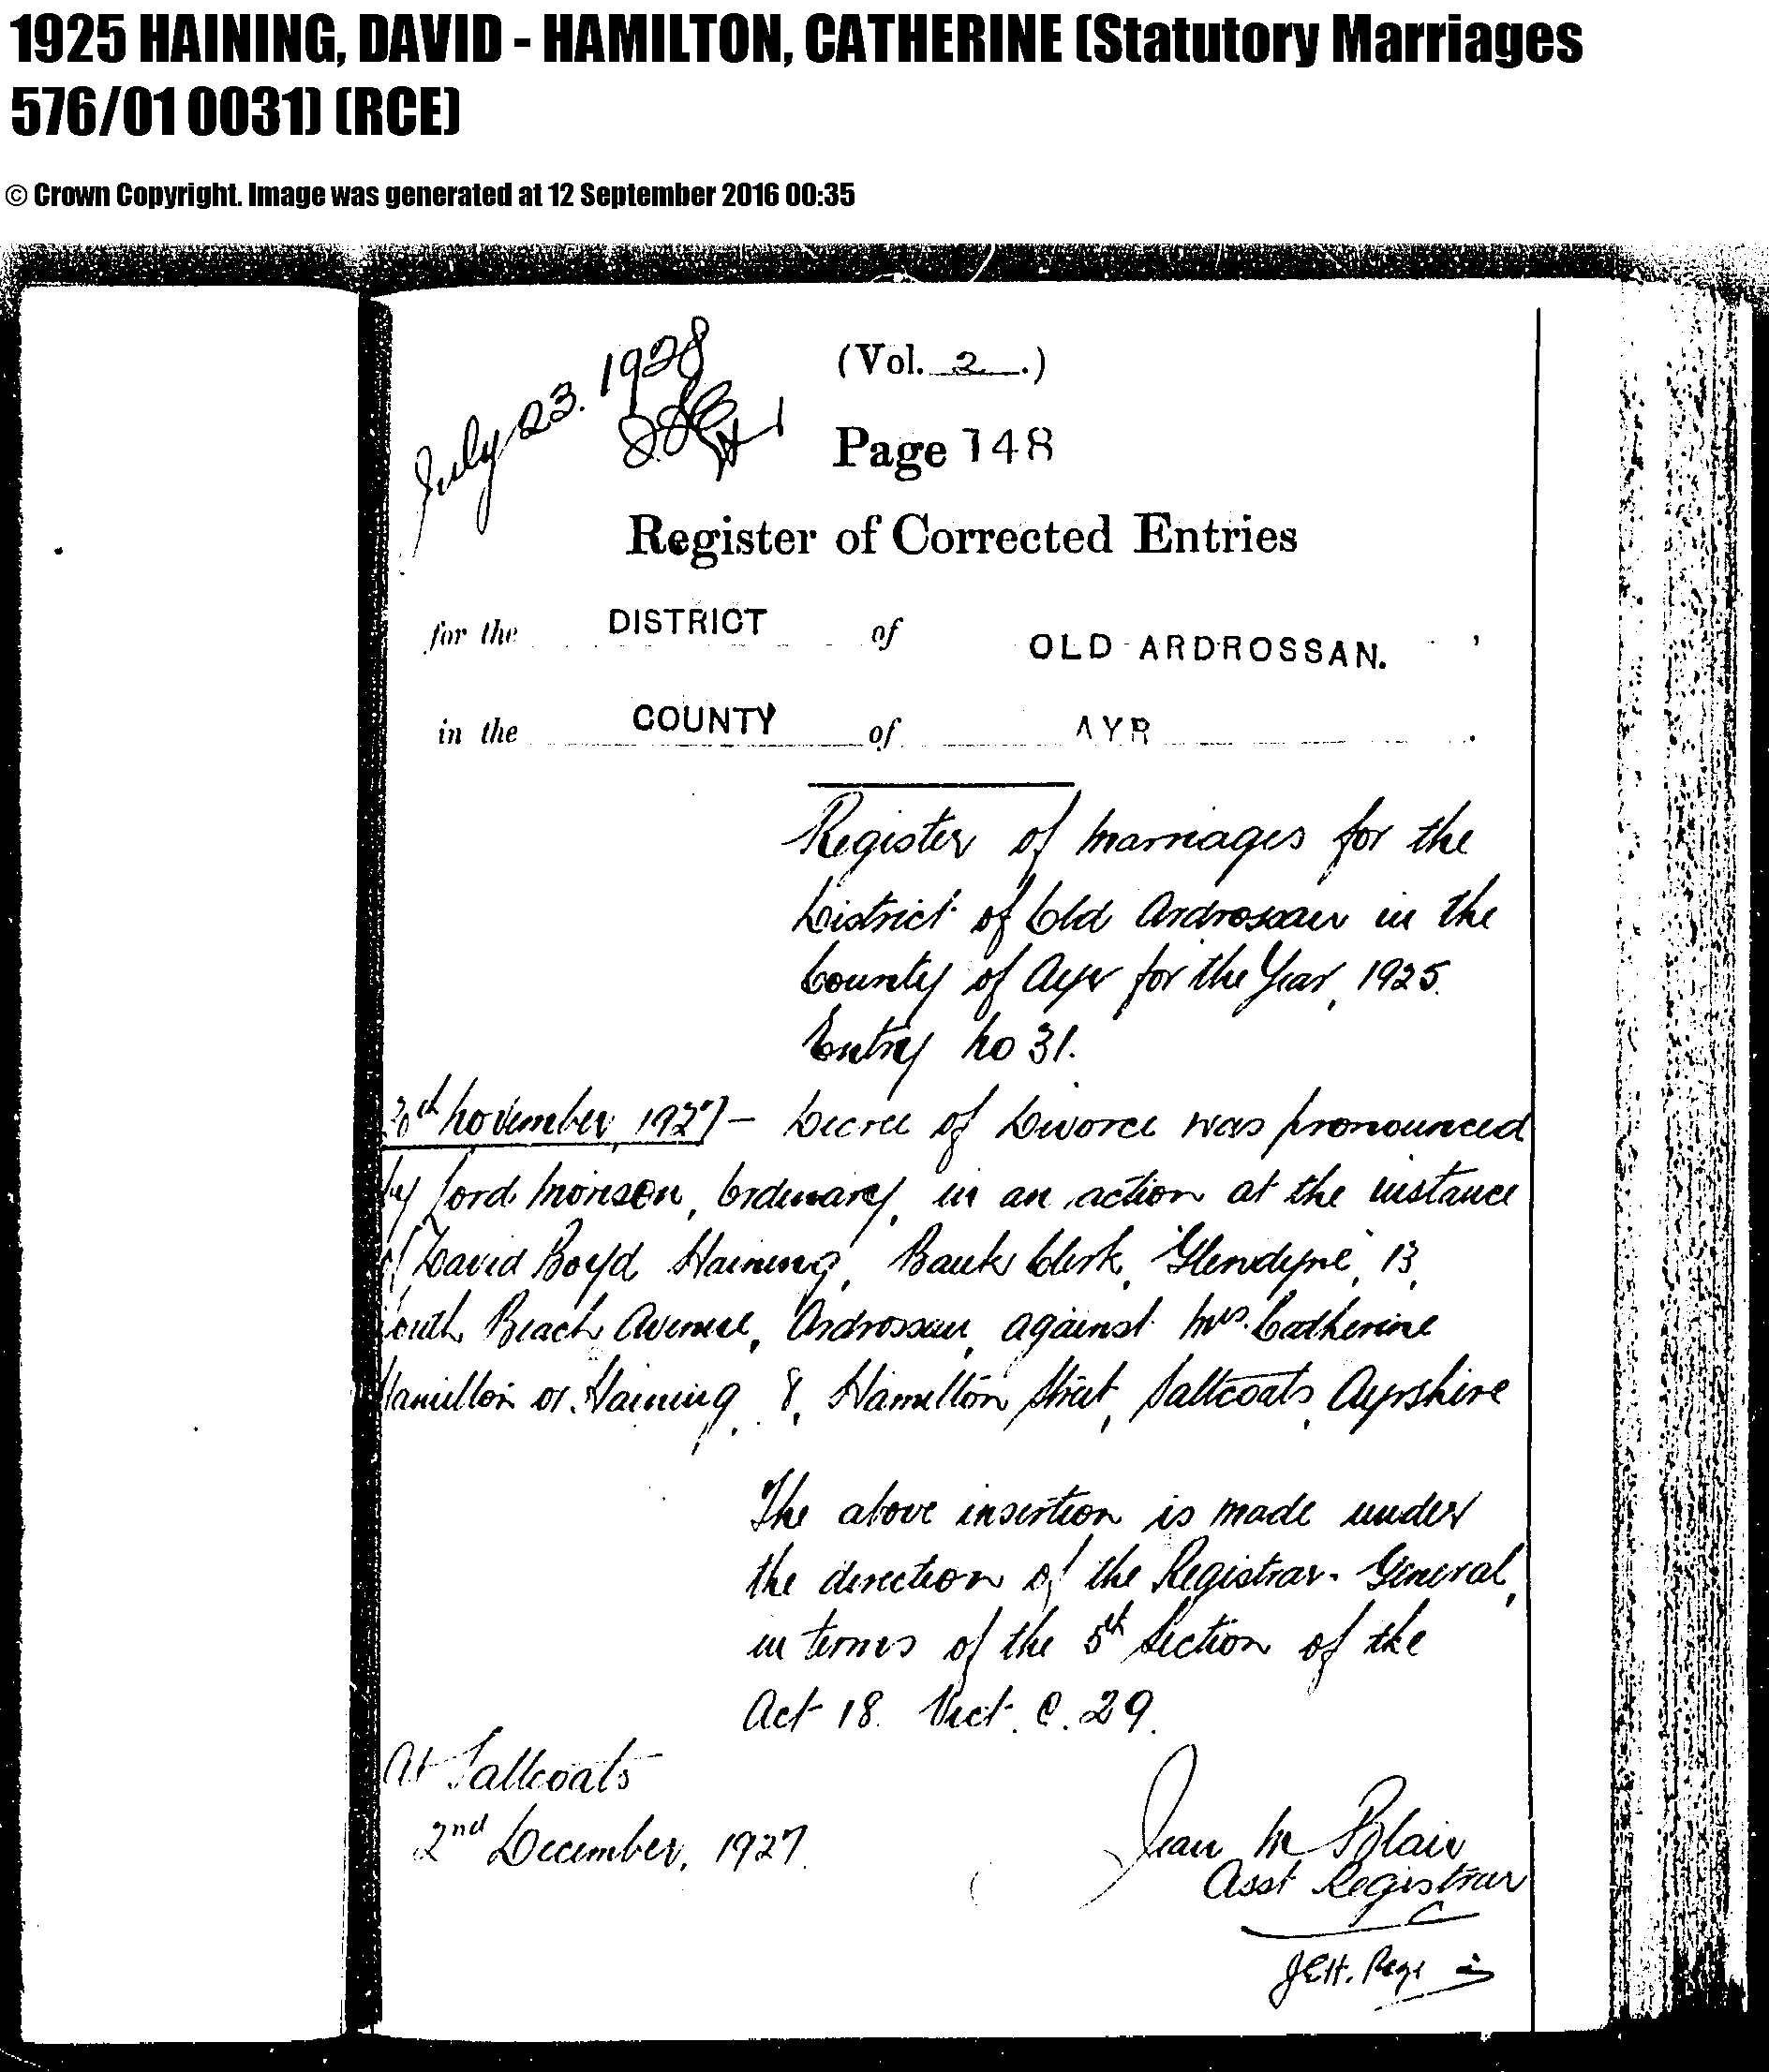 1925 HAINING, DAVID - HAMILTON, CATHERINE (Statutory Marriages
576/01 0031) (RCE)
© Crown Copyright. Image was generated at 12 September 2016 00:35
July 23. 1928
(Vol. 2.)
Page 148
Register of Corrected Entries
for the DISTRICT of OLD ARDROSSAN.
in the COUNTY of AYR
Register of Marriages for the
District of Old Ardrossan in the
County of Ayr for the Year, 1925.
Entry No 31.
November, 1927 – Decree of Divorce was pronounced
by Lord Morison, Ordinary, in an action at the instance
of David Boyd Haining, Bank Clerk, "Glendyne", 13,
South Beach Avenue, Ardrossan, against Mrs. Catherine
Hamilton or Haining, 8, Hamilton Street, Saltcoats, Ayrshire
The above insertion is made under
the direction of the Registrar-General,
in terms of the 5th Section of the
Act 18. Vict. C. 29.
At Saltcoats
2nd December, 1927.
Jean M Blair
Asst Registrar